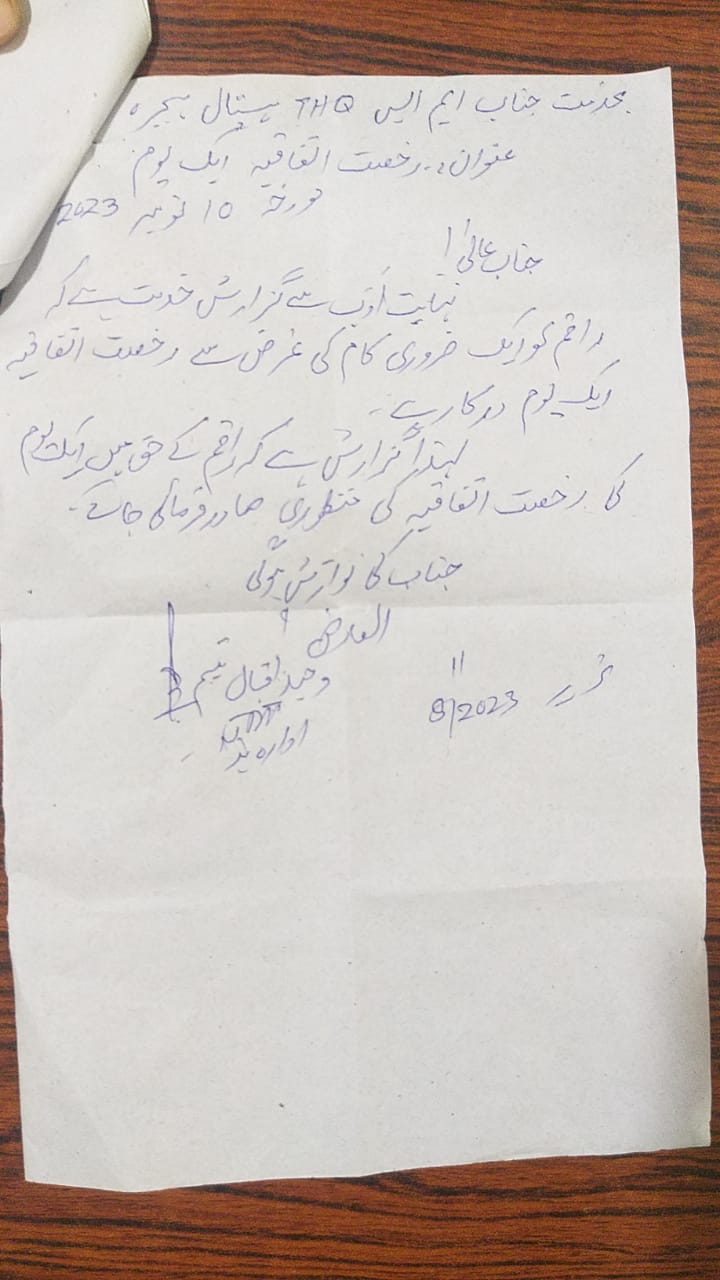 بخدمت جناب ایم ایس THQ ہسپتال ہجیرہ
عنوان:۔ رخصت اتفاقیہ ایک یوم
مورخہ 10 نومبر 2023
جناب عالی!
نہایت ادب سے گزارش خدمت ہے کہ
راقم کو ایک ضروری کام کی غرض سے رخصت اتفاقیہ
ایک یوم درکار ہے۔
لہذا گزارش ہے کہ راقم کے حق میں ایک یوم
کی رخصت اتفاقیہ کی منظوری صادر فرمائی جائے۔
جناب کی نوازش ہوگی
العارض
وحید اقبال
ادارہ ہذا
تحریر 8/11/2023